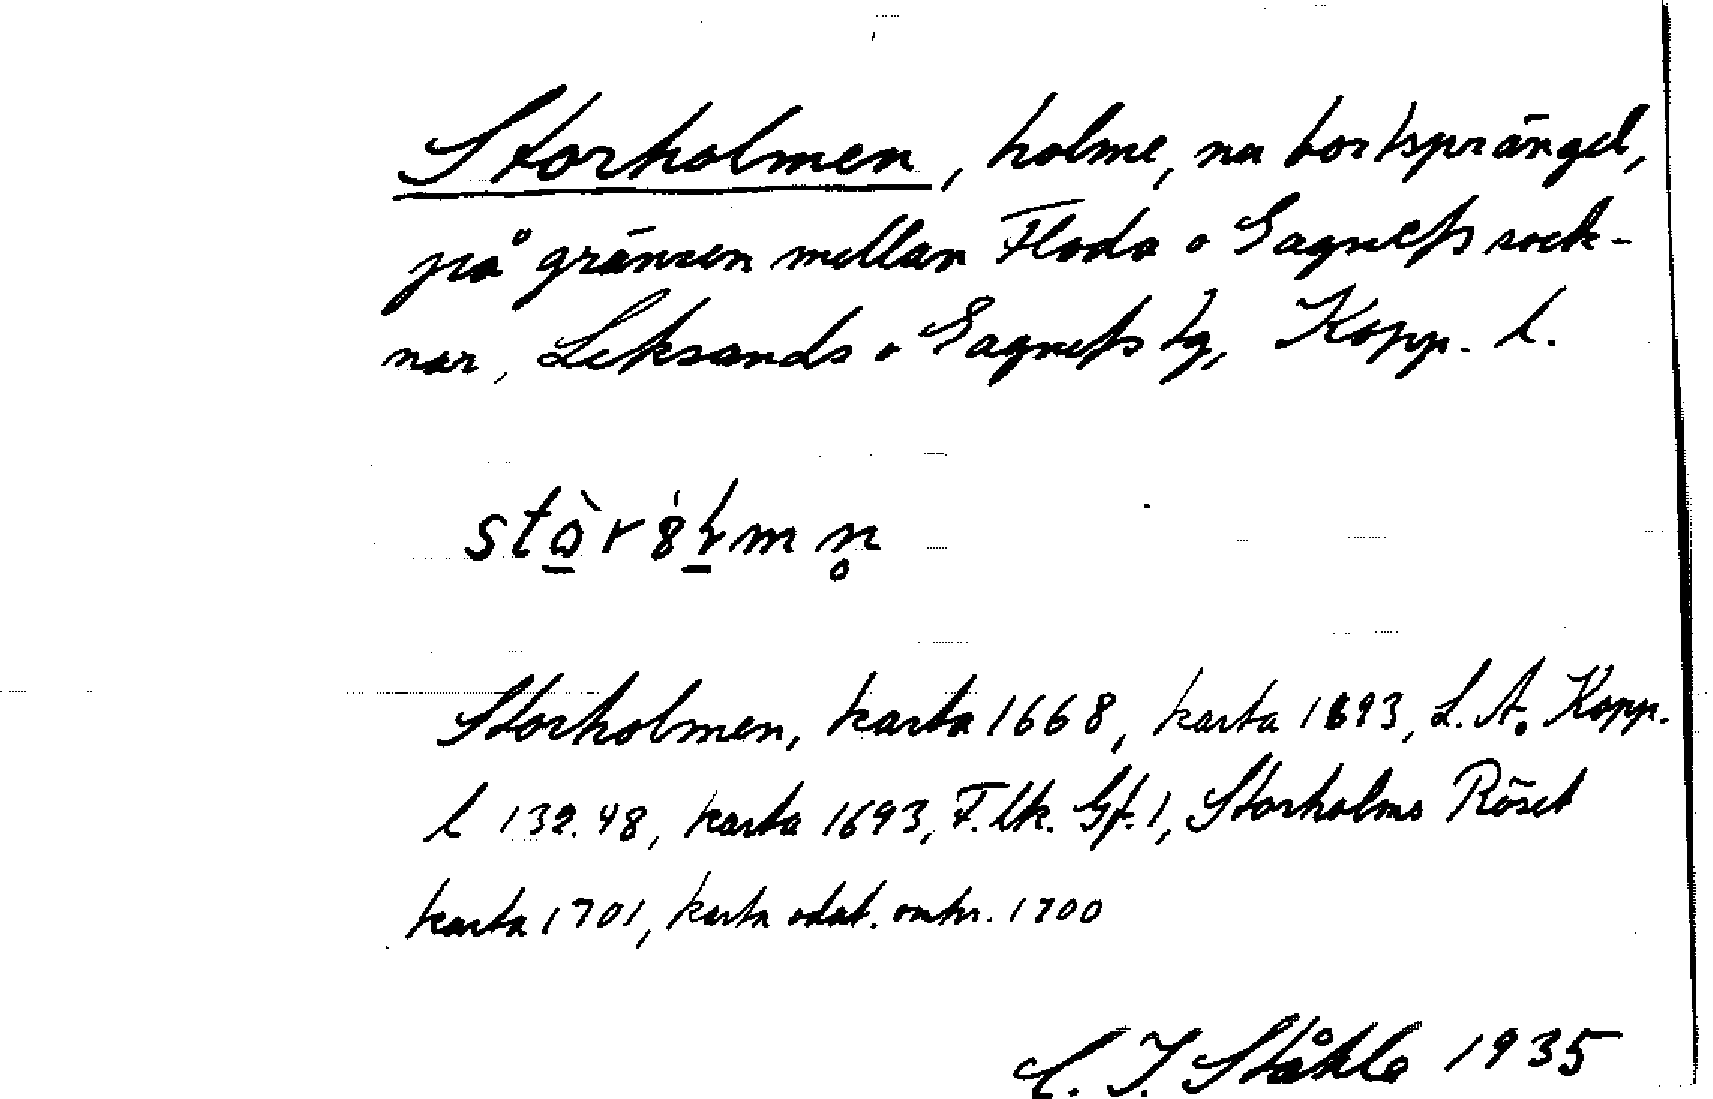 Storholmen, holme, nu bortsprängd,
på gränsen mellan Floda o Gagnefs sock-
nar, Leksands o Gagnefs tg, Kopp. l.
Storholmen, karta 1668, karta 1693, L.A. Kopp.
l 132.48, karta 1693, F. lk. Gf. 1, Storholms Röset
karta 1701, karta odat. omkr. 1700
C. I. Ståhle 1935